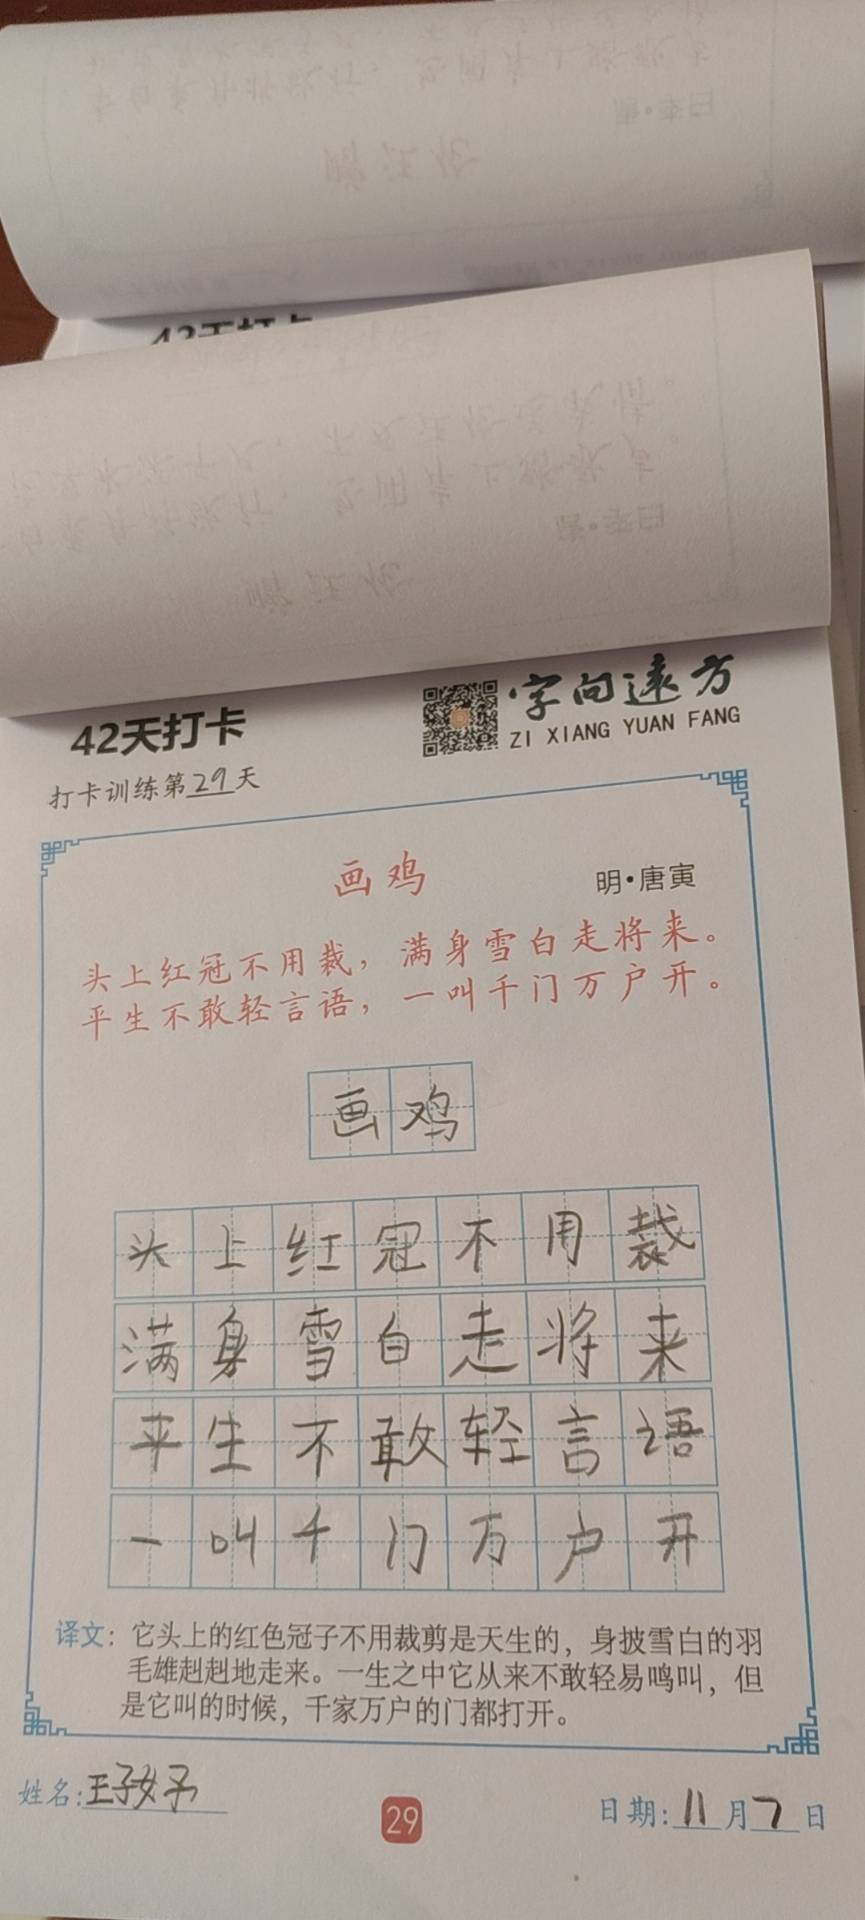 42天打卡
42天打卡
字向远方
ZI XIANG YUAN FANG
打卡训练第29天
画鸡
明·唐寅
头上红冠不用裁，满身雪白走将来。
平生不敢轻言语，一叫千门万户开。
画鸡
头上红冠不用裁
满身雪白走将来
平生不敢轻言语
一叫千门万户开
译文：它头上的红色冠子不用裁剪是天生的，身披雪白的羽
毛雄赳赳地走来。一生之中它从来不敢轻易鸣叫，但
是它叫的时候，千家万户的门都打开。
姓名:王子好
29
日期:11月7日